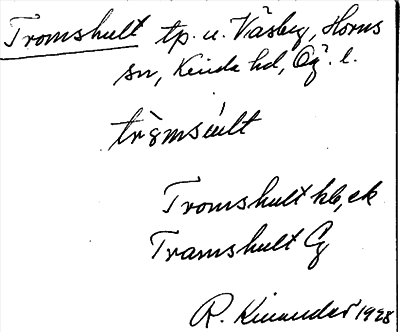 Tromshult tp. u. Väsby, Horns
sn, Kinda hd, Ög. l.
tròmsúlt
Tromshult hb, ek
Tramshult Cg
R. Kinander 1928